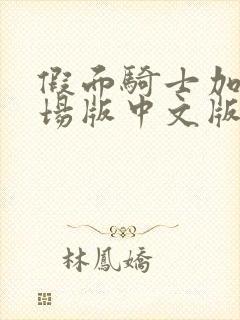 假面騎士加
場版中文版
林鳳嬌